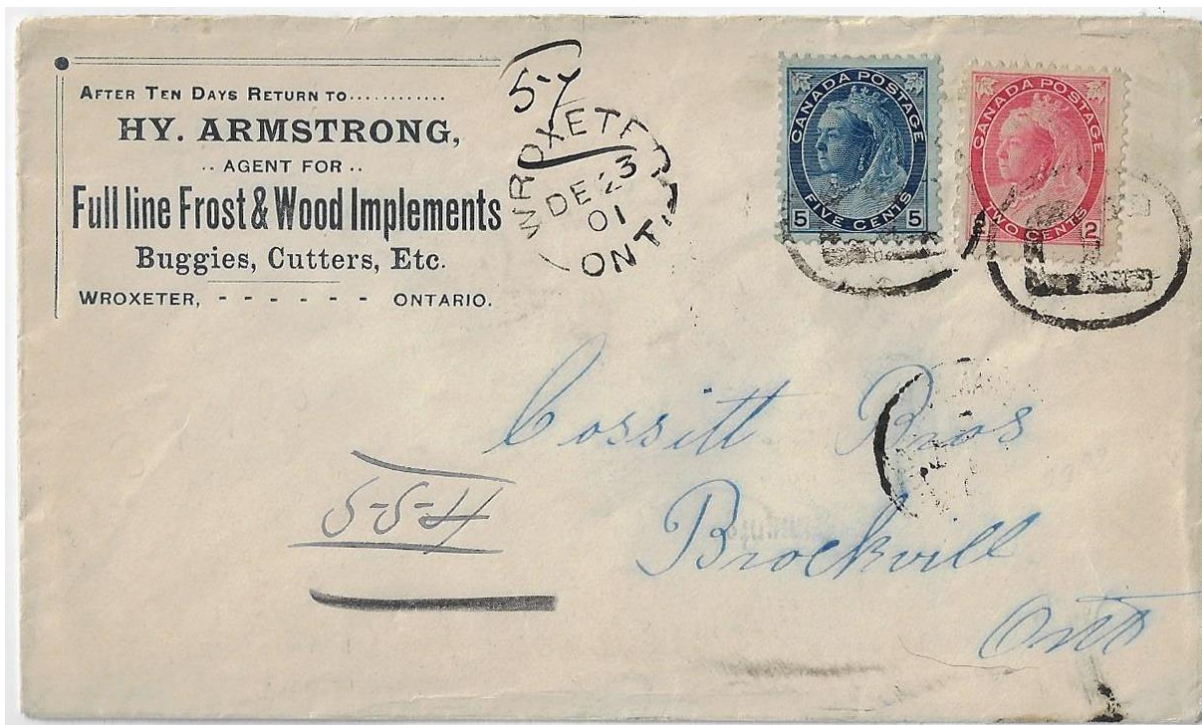 AFTER TEN DAYS RETURN TO............
HY. ARMSTRONG,
.. AGENT FOR ..
Full line Frost & Wood Implements
Buggies, Cutters, Etc.
WROXETER, - - - - - - ONTARIO.
WROXETER
DE 23
01
ONT.
CANADA POSTAGE
5 FIVE CENTS 5
CANADA POSTAGE
TWO CENTS 2
Cossitt Bros
554
Brockvill
Ont